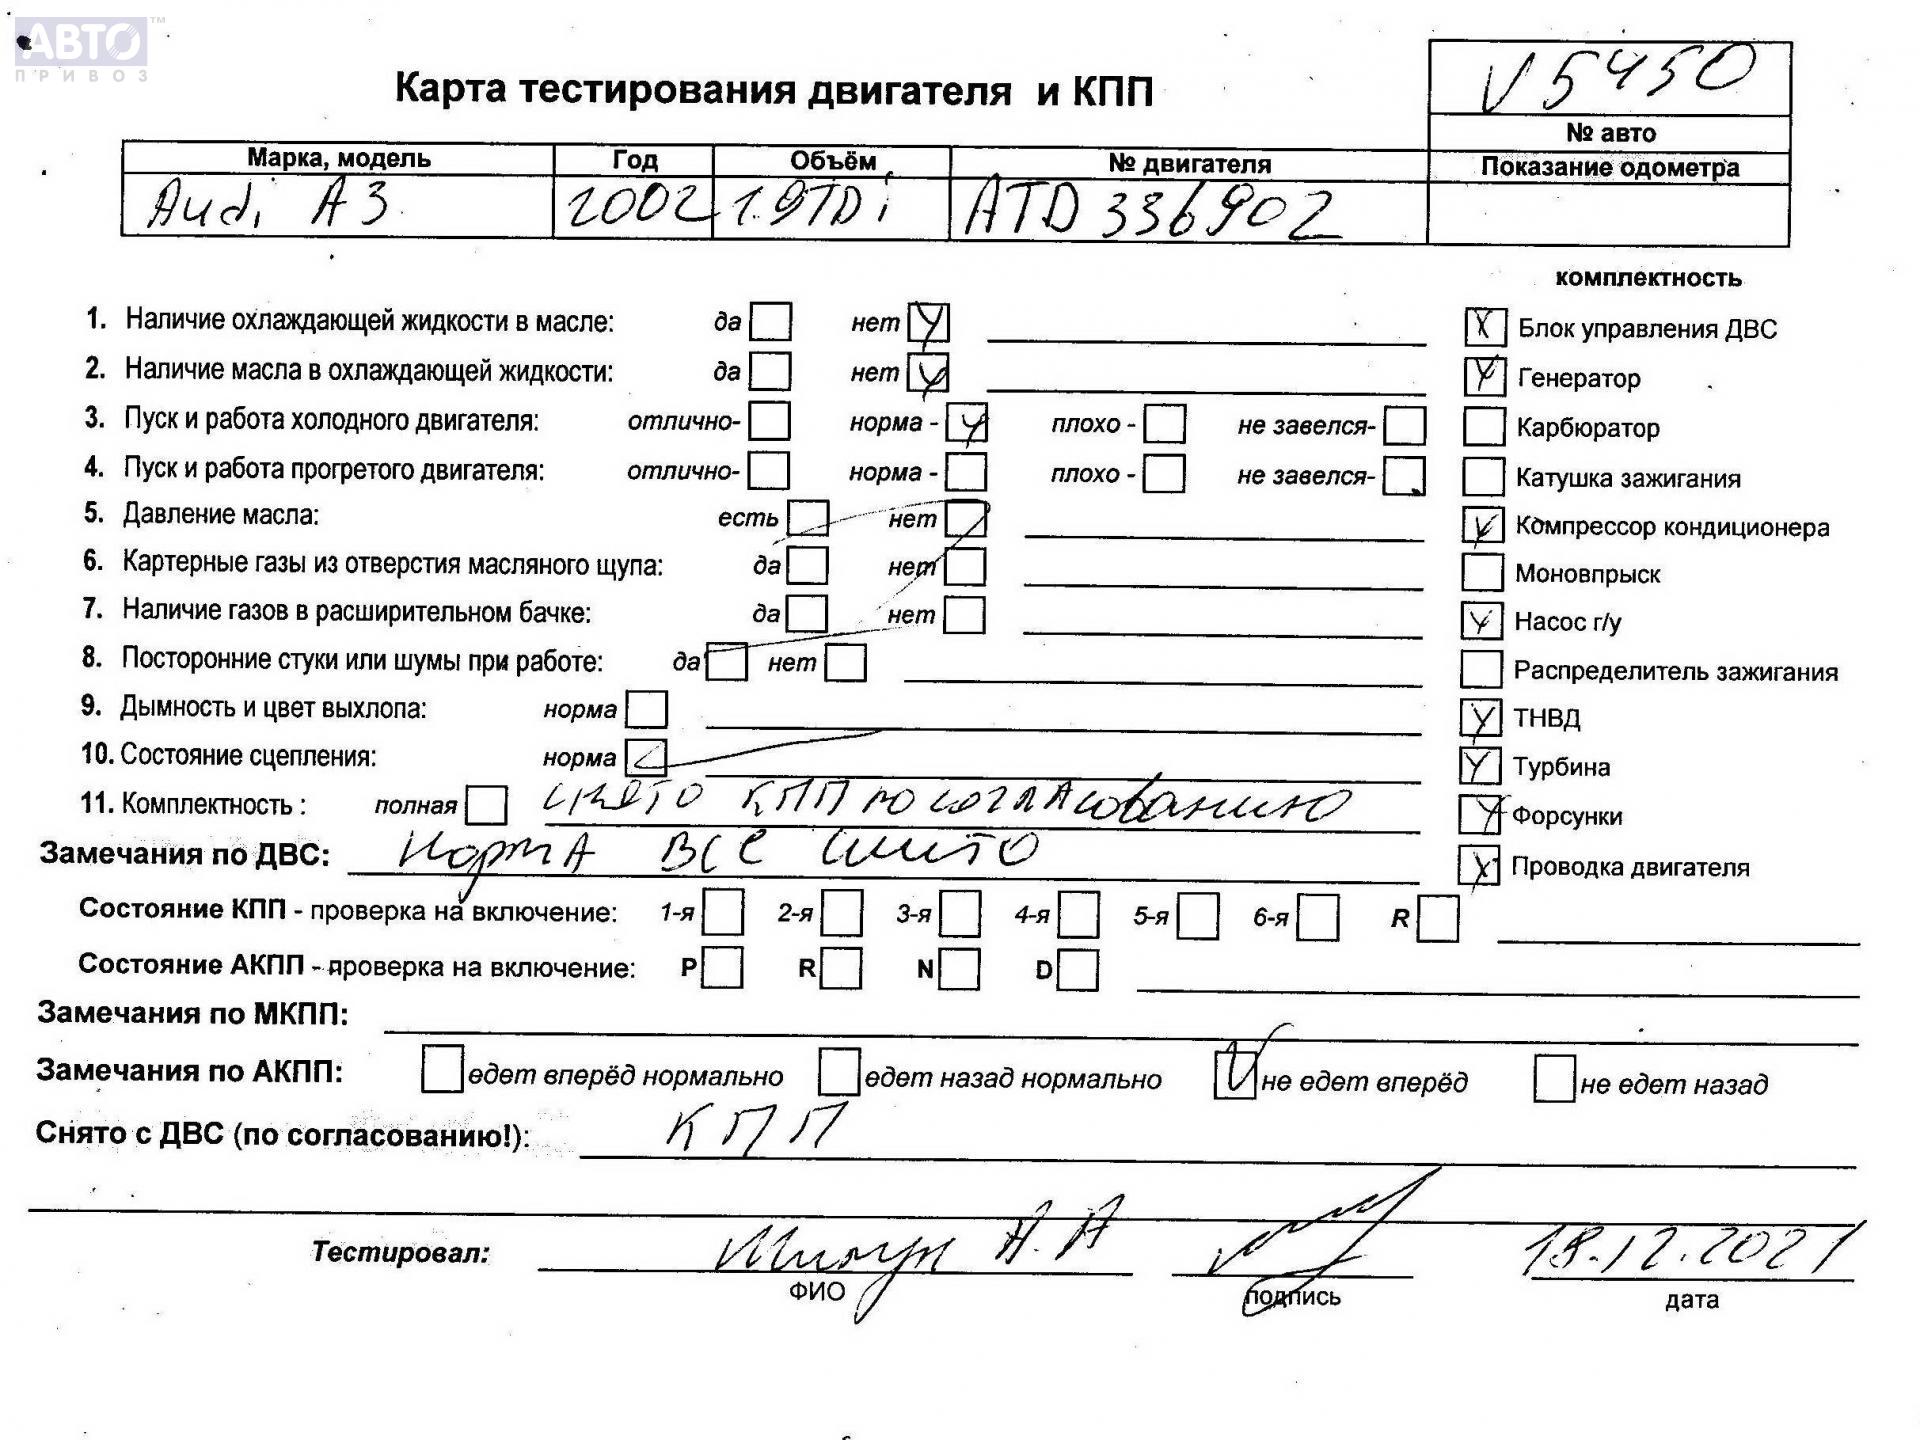 АВТО™
ПРИВОЗ
V5450
Карта тестирования двигателя и КПП
№ авто
Марка, модель Год Объём № двигателя Показание одометра
Audi A3 2002 1.9TDi ATD 336902
комплектность
1. Наличие охлаждающей жидкости в масле: да нет
Блок управления ДВС
2. Наличие масла в охлаждающей жидкости: да нет
Генератор
3. Пуск и работа холодного двигателя: отлично- норма - плохо - не завелся-
Карбюратор
4. Пуск и работа прогретого двигателя: отлично- норма - плохо - не завелся-
Катушка зажигания
5. Давление масла: есть нет
Компрессор кондиционера
6. Картерные газы из отверстия масляного щупа: да нет
Моновпрыск
7. Наличие газов в расширительном бачке: да нет
Насос г/у
8. Посторонние стуки или шумы при работе: да нет
Распределитель зажигания
9. Дымность и цвет выхлопа: норма
ТНВД
10. Состояние сцепления: норма
Турбина
11. Комплектность : полная снято КПП по согласованию
Форсунки
Замечания по ДВС: Норма все
Проводка двигателя
Состояние КПП - проверка на включение: 1-я 2-я 3-я 4-я 5-я 6-я R
Состояние АКПП - проверка на включение: P R N D
Замечания по МКПП:
Замечания по АКПП: едет вперёд нормально едет назад нормально не едет вперёд не едет назад
Снято с ДВС (по согласованию!): КПП
Тестировал: А.А 18.12.2021
ФИО подпись дата